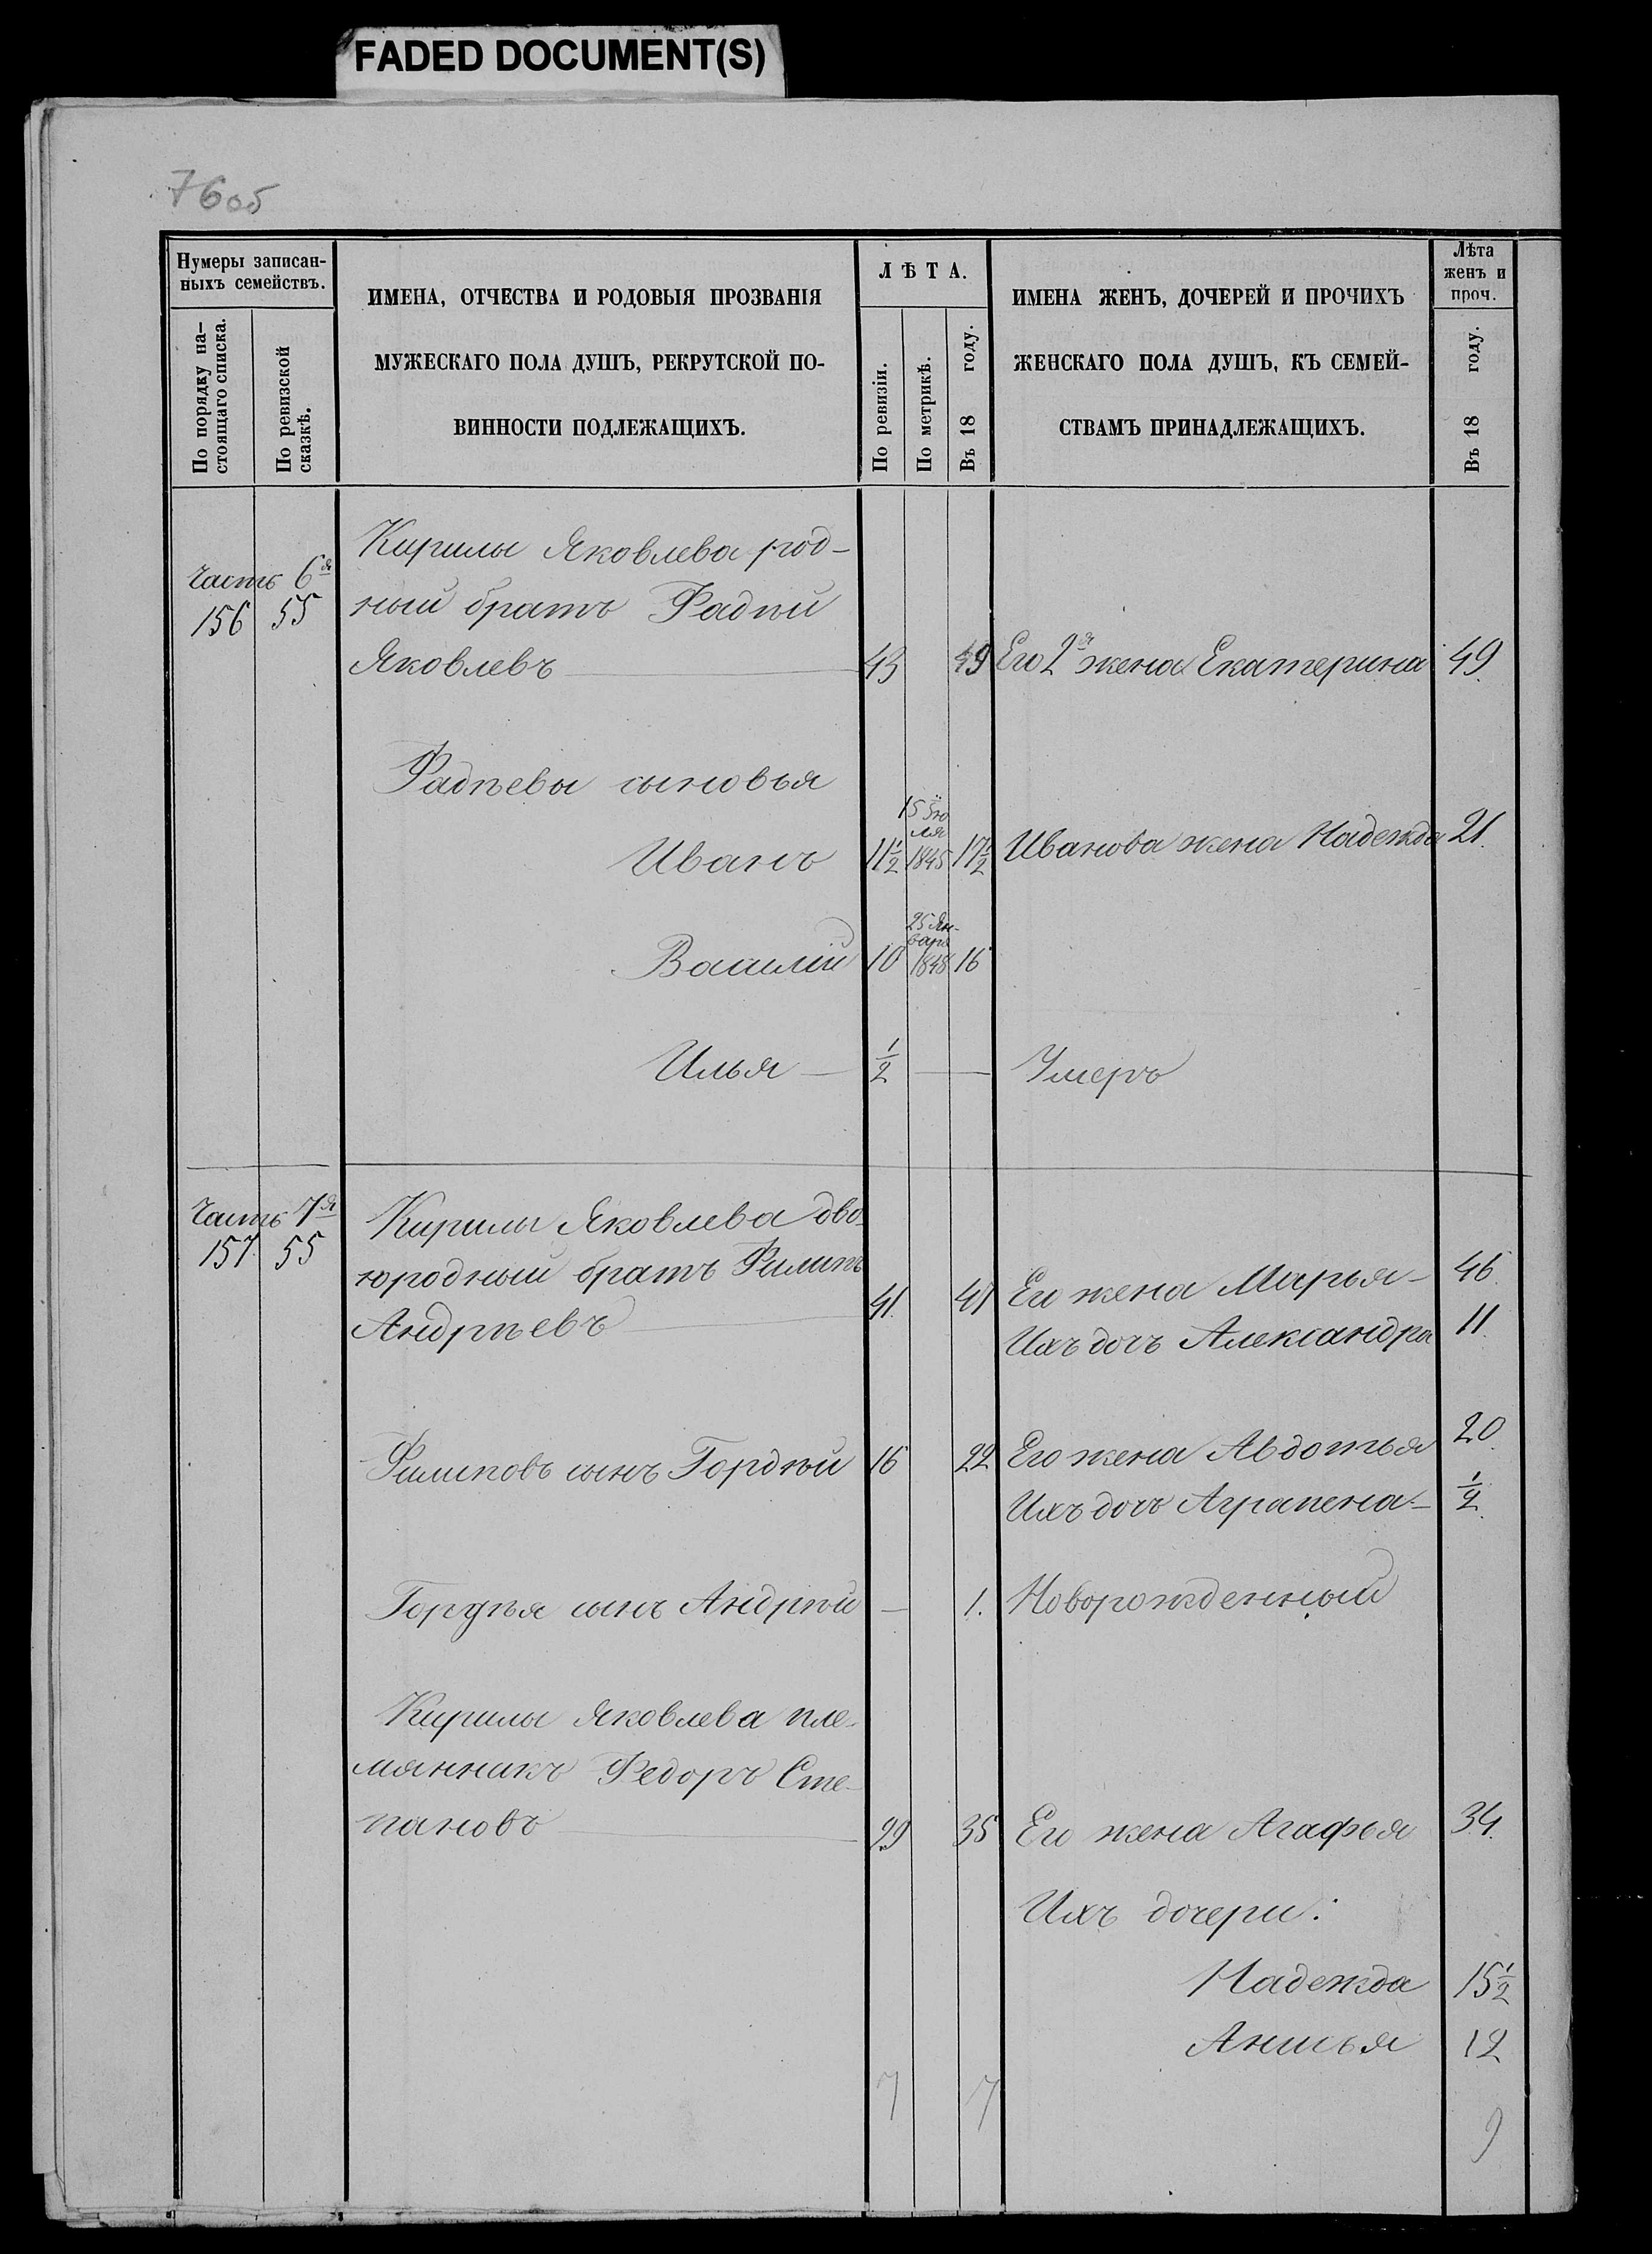 FADED DOCUMENT(S)
76об
Нумеры записан-
ныхъ семействъ.
По порядку на-
стоящаго списка.
По ревизской
сказкѣ.
ИМЕНА, ОТЧЕСТВА И РОДОВЫЯ ПРОЗВАНІЯ
МУЖЕСКАГО ПОЛА ДУШЪ, РЕКРУТСКОЙ ПО-
ВИННОСТИ ПОДЛЕЖАЩИХЪ.
ЛѢТА.
По ревизіи.
По метрикѣ.
Въ 18 году.
ИМЕНА ЖЕНЪ, ДОЧЕРЕЙ И ПРОЧИХЪ
ЖЕНСКАГО ПОЛА ДУШЪ, КЪ СЕМЕЙ-
СТВАМЪ ПРИНАДЛЕЖАЩИХЪ.
Лѣта
женъ и
проч.
Въ 18 году.
Часть 6я
156 55
Кирилы Яковлева род-
ный братъ Фадѣй
Яковлевъ 43 49 Его 2я жена Екатерина 49
Фадѣевы сыновья
15 Ію
ля
Иванъ 11½ 1845 17½ Иванова жена Надежда 21.
25 Ян-
варя
Василій 10 1848 16
Илья — ½ — — Умеръ
Часть 7я
157 55
Кирилы Яковлева дво-
юродный братъ Филипъ
Андрѣевъ 41. 47 Его жена Марья - 46.
Ихъ дочь Александра 11.
Филиповъ сынъ Гордѣй 16 22 Его жена Авдотья 20.
Ихъ дочь Аграпена - ½.
Гордѣя сынъ Андрѣй — 1. Новорожденный
Кирилы Яковлева пле-
мянникъ Федоръ Сте-
пановъ 29 35 Его жена Агафья 34.
Ихъ дочери:
Надежда 15½
Анисья 12
7 7 9